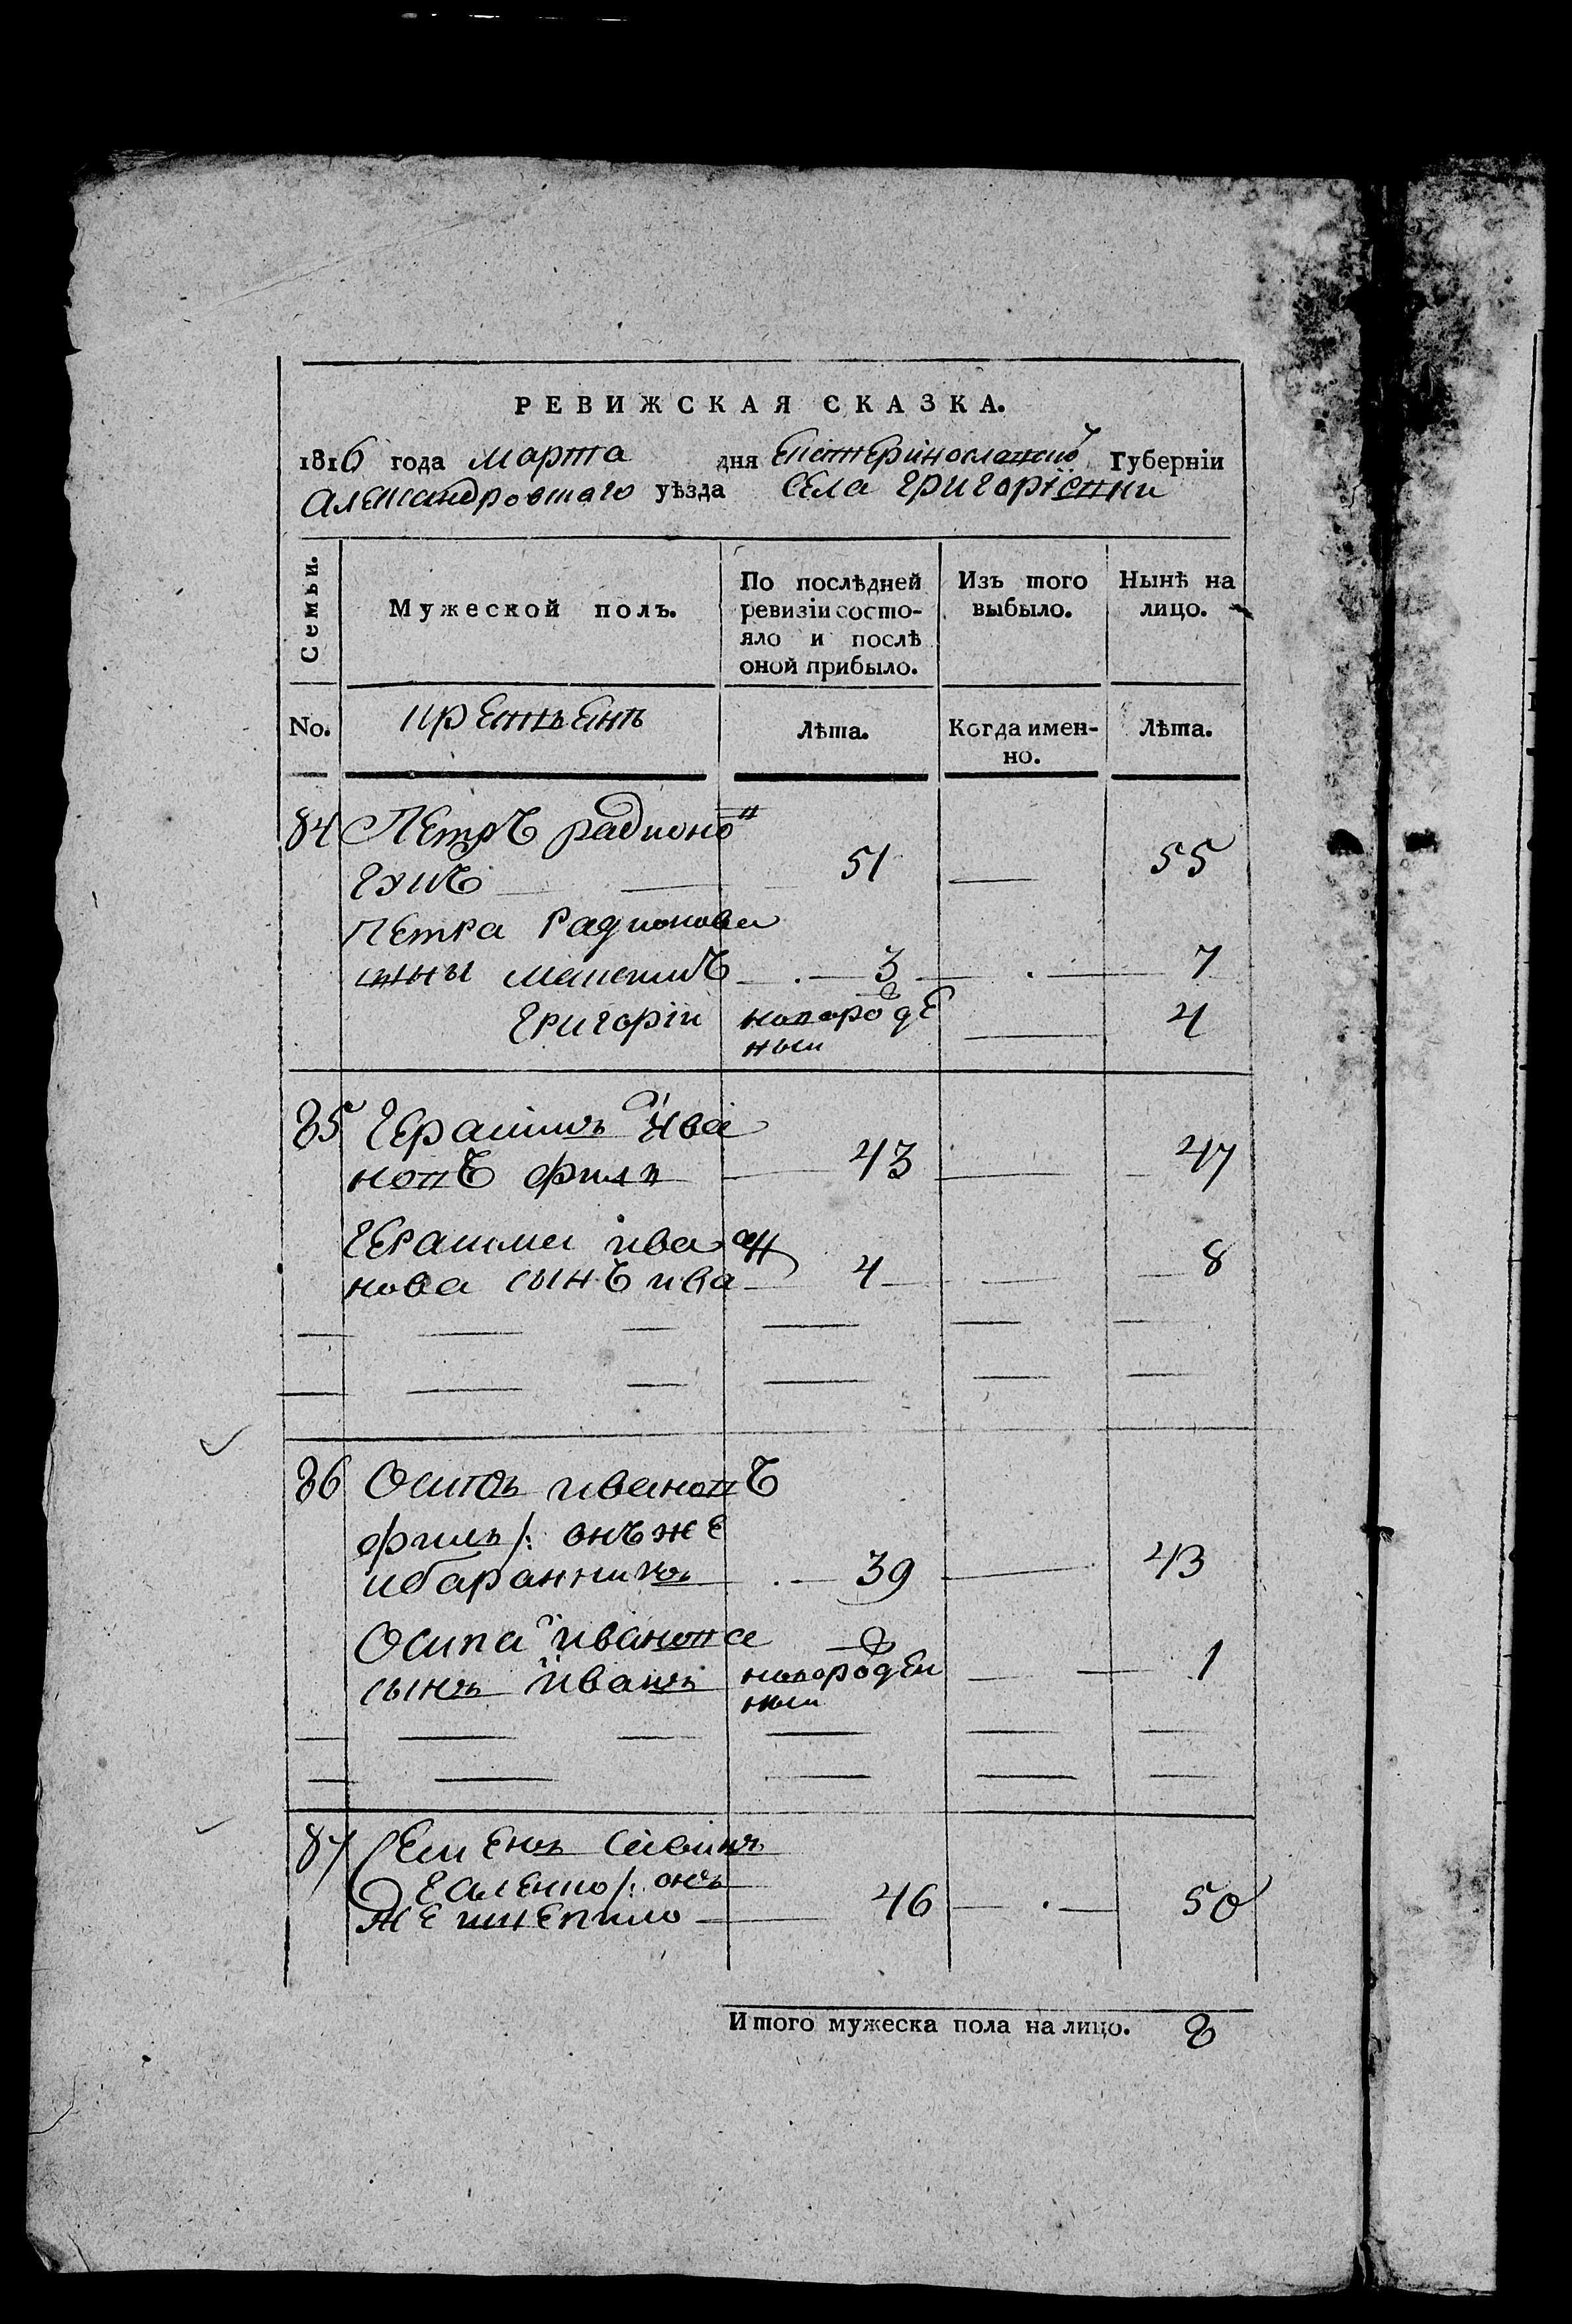 РЕВИЖСКАЯ СКАЗКА.
1816 года марта дня Екатеринославской Губерніи
Александровскаго уѣзда села Григорїевки
Семьи.
Мужеской полъ.
По послѣдней ревизіи состо-
яло и послѣ оной прибыло.
Изъ того выбыло.
Нынѣ на лицо.
No.
Лѣта.
Когда имен-
но.
Лѣта.
84 Петръ радионовъ
51 55
Петра Радионова
сыны 3 7
Григорій новорожде
ный 4
85 Герасимъ Ива
новъ филь 43 47
Герасима ива
нова сынъ иванъ 4 8
86 Осипъ ивановъ
филь /: онъ же
ибаранникъ 39 43
Осипа иванова
сынъ Иванъ новорожден
ный 1
87 Семенъ Савинъ
Галенко /: онъ
же 46 50
Итого мужеска пола на лицо. 8